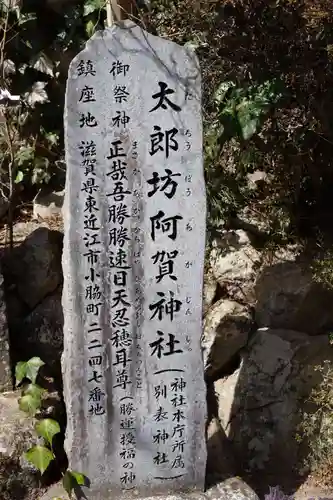 太郎坊阿賀神社(神社本庁所属 別表神社)
たろうぼうあがじんじゃ
御祭神 正哉吾勝勝速日天忍穂耳尊(勝運授福の神)
鎮座地 滋賀県東近江市小脇町二二四七番地